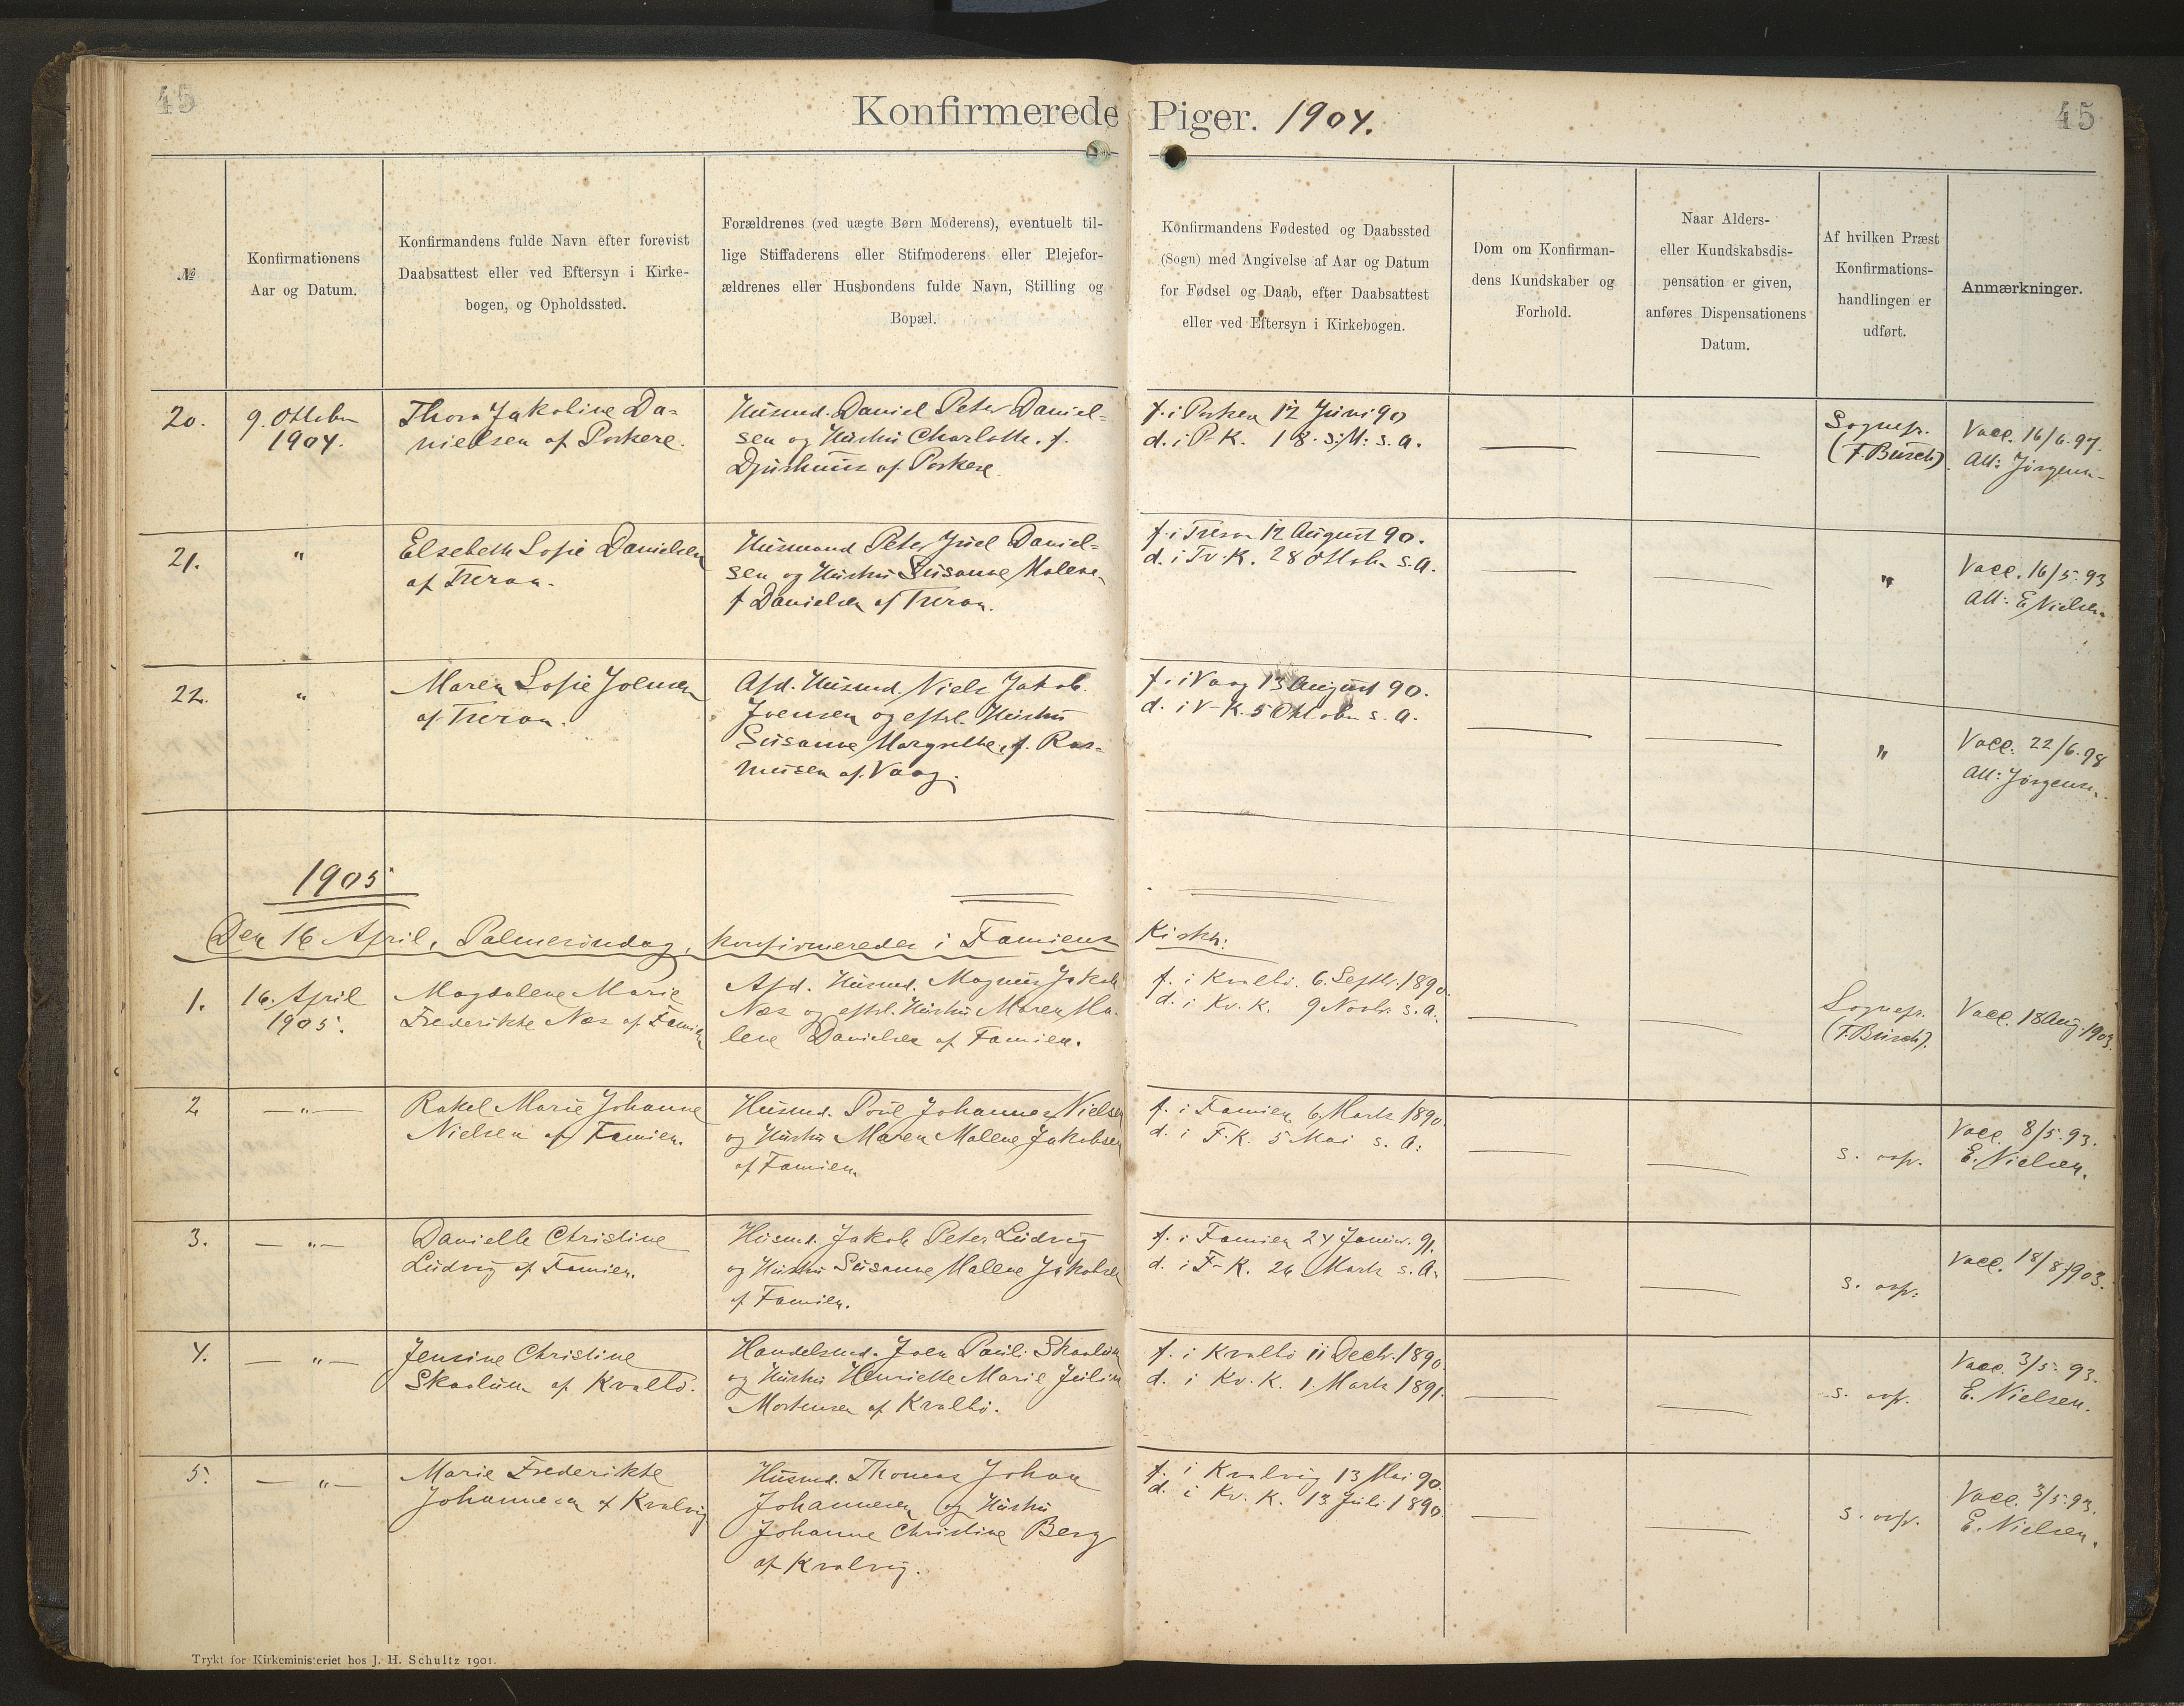 45
Konfirmerede Piger. 1904.
45
№
Konfirmationens
Aar og Datum.
Konfirmandens fulde Navn efter forevist
Daabsattest eller ved Eftersyn i Kirke-
bogen, og Opholdssted.
Forældrenes (ved uægte Børn Moderens), eventuelt til-
lige Stiffaderens eller Stifmoderens eller Plejefor-
ældrenes eller Husbondens fulde Navn, Stilling og
Bopæl.
Konfirmandens Fødested og Daabssted
(Sogn) med Angivelse af Aar og Datum
for Fødsel og Daab, efter Daabsattest
eller ved Eftersyn i Kirkebogen.
Dom om Konfirman-
dens Kundskaber og
Forhold.
Naar Alders-
eller Kundskabsdis-
pensation er given,
anføres Dispensationens
Datum.
Af hvilken Præst
Konfirmations-
handlingen er
udført.
Anmærkninger.
20.
9. Oktober
1904.
Thora Jakobine Da-
nielsen af Porkere.
Husmd. Daniel Peter Daniel-
sen og Hustru Charlotte, f.
Djurhuus af Porkere
f. i Porkere 12 Juni 90
d. i P-K. 18. s. M: s. a.
Sognepr.
(F. Busch).
Vacc. 16/6.97.
Att: Jörgensen
21.
"
Elsebeth Sofie Danielsen
af Tveraa.
Husmand Peter Juel Daniel-
sen og Hustru Susanne Malene,
f Danielsen af Tveraa.
f. i Tveraa 12 August 90.
d. i Tv. K. 28 Oktob. s. a.
"
Vacc. 16/5.93
Att: E. Nielsen
22.
"
Maren Sofie Joensen
af Tveraa.
Afd. Husmd. Niels Jakob
Joensen og eftrl. Hustru
Susanne Margrethe, f. Ras-
mussen af Vaag.
f. i Vaag 13 August 90.
d. i V-K. 5 Oktober s. a.
"
Vacc. 22/6.98
Att: Jörgensen.
1905
Den 16 April, Palmesöndag, konfirmeredes i Famiens Kirke:
1.
16. April
1905.
Magdalene Marie
Frederikke Næs af Famien
Afd. Husmd. Magnus Jakob
Næs og eftrl. Hustru Maren Ma-
lene Danielsen af Famien.
f. i Kvalbö. 6. Septbr. 1890.
d. i Kv. K. 9 Novbr. s. a.
Sognepr.
(F. Busch).
Vacc. 18 Aug. 1903.
2
— " —
Rakel Marie Johanne
Nielsen af Famien.
Husmd. Poul Johannes Nielsen
og Hustru Maren Malene Jakobsen
af Famien
f. i Famien 6 Marts 1890.
d. i F. K. 5 Mai s. a:
s. ovf.
Vacc. 8/5.93.
E. Nielsen.
3.
— " —
Danielle Christine
Ludvig af Famien.
Husmd. Jakob Peter Ludvig
og Hustru Susanne Malene Jakobsen
af Famien.
f. i Famien 24 Januar. 91.
d. i F-K. 26 Marts s. a.
s. ovf.
Vacc. 18/8 1903.
4.
— " —
Jensine Christine
Skaalum af Kvalbö.
Handelsmd. Joen Pauli Skaalum
og Hustru Henriette Marie Juline
Mortensen af Kvalbö.
f. i Kvalbö 11 Decbr. 1890.
d. i Kv. K. 1. Marts 1891.
s. ovf.
Vacc. 3/5. 93.
E. Nielsen.
5.
— " —
Marie Frederikke
Johannesen af Kvalvig
Husmd. Thomas Johan
Johannesen og Hustru
Johanne Christine Berg
af Kvalvig.
f. i Kvalvig 13 Mai 90.
d. i Kv. K. 13 Juli 1890
s. ovf.
Vacc. 3/5.93.
E. Nielsen.
Trykt for Kirkeministeriet hos J. H. Schultz 1901.